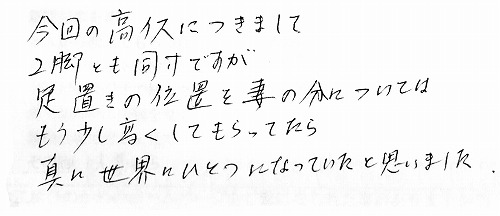 今回の高イスにつきまして
2脚とも同寸ですが
足置きの位置を妻の分については
もう少し高くしてもらってたら
真に世界にひとつになっていたと思いました.